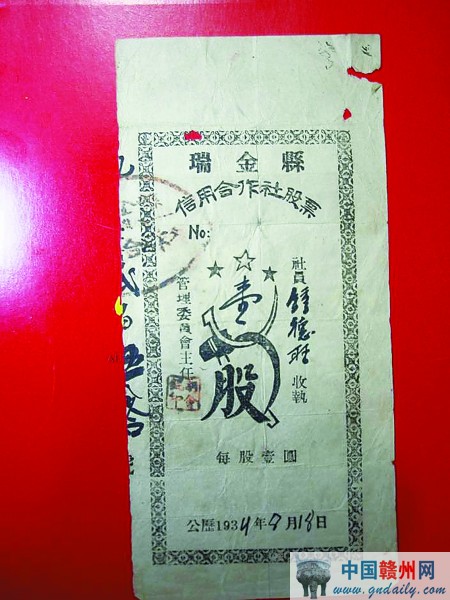 瑞金縣
信用合作社股票
No:
社員 鍾德 收執
壹
股
管理委員會主任
每股壹圓
公歷1934年9月18日
中国赣州网
www.gndaily.com